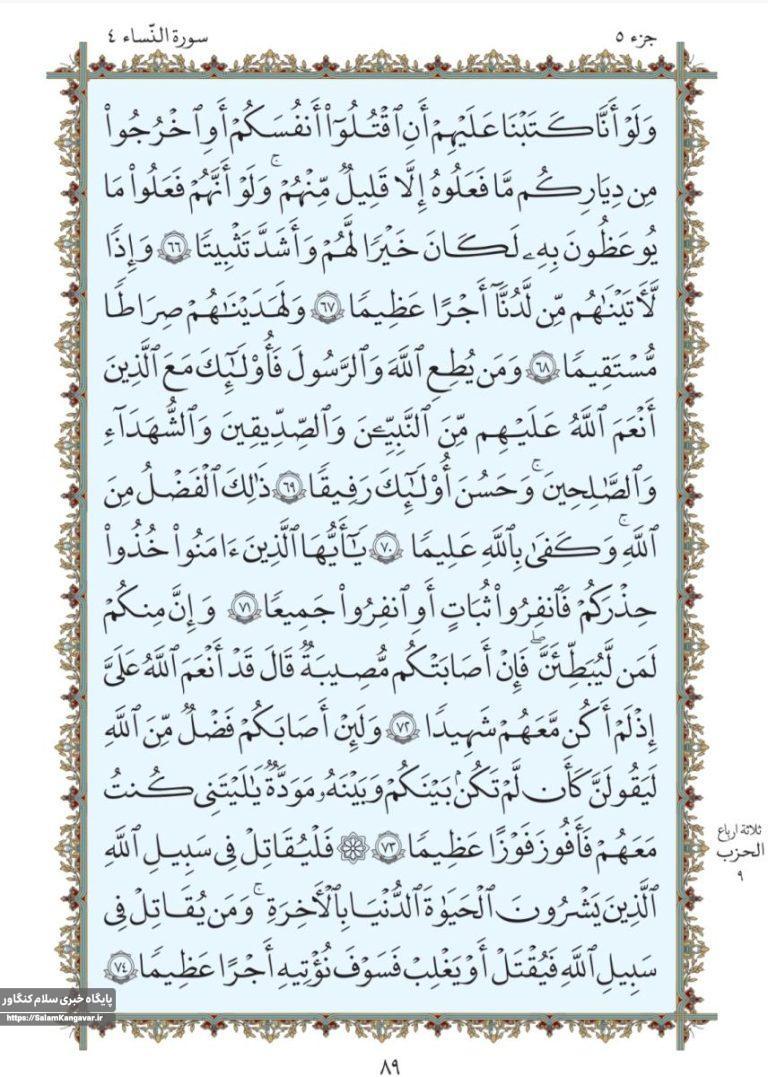 جزء ٥
سورة النّساء ٤
وَلَوْ أَنَّا كَتَبْنَا عَلَيْهِمْ أَنِ ٱقْتُلُوٓا۟ أَنفُسَكُمْ أَوِ ٱخْرُجُوا۟
مِن دِيَارِكُم مَّا فَعَلُوهُ إِلَّا قَلِيلٌ مِّنْهُمْ ۖ وَلَوْ أَنَّهُمْ فَعَلُوا۟ مَا
يُوعَظُونَ بِهِۦ لَكَانَ خَيْرًا لَّهُمْ وَأَشَدَّ تَثْبِيتًا ﴿٦٦﴾ وَإِذًا
لَّـَٔاتَيْنَـٰهُم مِّن لَّدُنَّآ أَجْرًا عَظِيمًا ﴿٦٧﴾ وَلَهَدَيْنَـٰهُمْ صِرَٰطًا
مُّسْتَقِيمًا ﴿٦٨﴾ وَمَن يُطِعِ ٱللَّهَ وَٱلرَّسُولَ فَأُو۟لَـٰٓئِكَ مَعَ ٱلَّذِينَ
أَنْعَمَ ٱللَّهُ عَلَيْهِم مِّنَ ٱلنَّبِيِّـۧنَ وَٱلصِّدِّيقِينَ وَٱلشُّهَدَآءِ
وَٱلصَّـٰلِحِينَ ۚ وَحَسُنَ أُو۟لَـٰٓئِكَ رَفِيقًا ﴿٦٩﴾ ذَٰلِكَ ٱلْفَضْلُ مِنَ
ٱللَّهِ ۚ وَكَفَىٰ بِٱللَّهِ عَلِيمًا ﴿٧٠﴾ يَـٰٓأَيُّهَا ٱلَّذِينَ ءَامَنُوا۟ خُذُوا۟
حِذْرَكُمْ فَٱنفِرُوا۟ ثُبَاتٍ أَوِ ٱنفِرُوا۟ جَمِيعًا ﴿٧١﴾ وَإِنَّ مِنكُمْ
لَمَن لَّيُبَطِّئَنَّ ۖ فَإِنْ أَصَابَتْكُم مُّصِيبَةٌ قَالَ قَدْ أَنْعَمَ ٱللَّهُ عَلَىَّ
إِذْ لَمْ أَكُن مَّعَهُمْ شَهِيدًا ﴿٧٢﴾ وَلَئِنْ أَصَابَكُمْ فَضْلٌ مِّنَ ٱللَّهِ
لَيَقُولَنَّ كَأَن لَّمْ تَكُنۢ بَيْنَكُمْ وَبَيْنَهُۥ مَوَدَّةٌ يَـٰلَيْتَنِى كُنتُ
مَعَهُمْ فَأَفُوزَ فَوْزًا عَظِيمًا ﴿٧٣﴾ ۞ فَلْيُقَاتِلْ فِى سَبِيلِ ٱللَّهِ
ٱلَّذِينَ يَشْرُونَ ٱلْحَيَوٰةَ ٱلدُّنْيَا بِٱلْـَٔاخِرَةِ ۚ وَمَن يُقَاتِلْ فِى
سَبِيلِ ٱللَّهِ فَيُقْتَلْ أَوْ يَغْلِبْ فَسَوْفَ نُؤْتِيهِ أَجْرًا عَظِيمًا ﴿٧٤﴾
ثلاثة ارباع
الحزب
٩
پایگاه خبری سلام کنگاور
https://SalamKangavar.ir
٨٩